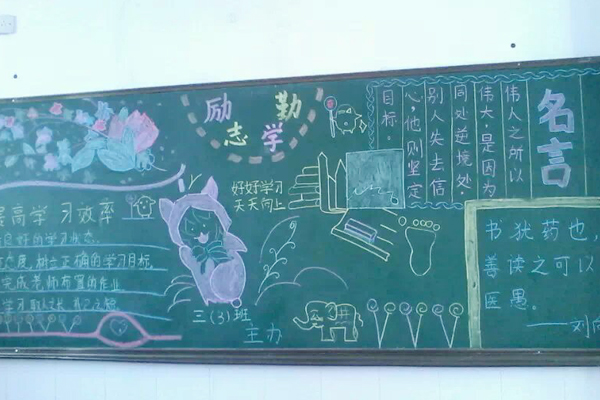 励志
勤学
高学习效率
好的学习状态.
树立正确的学习目标,
完成老师布置的作业
学习
好好学习
天天向上
三(3)班
主办
名言
伟人之所以
伟大,是因为
同处逆境处
别人失去信
心,他则坚定
目标.
书犹药也,
善读之可以
医愚.
——刘